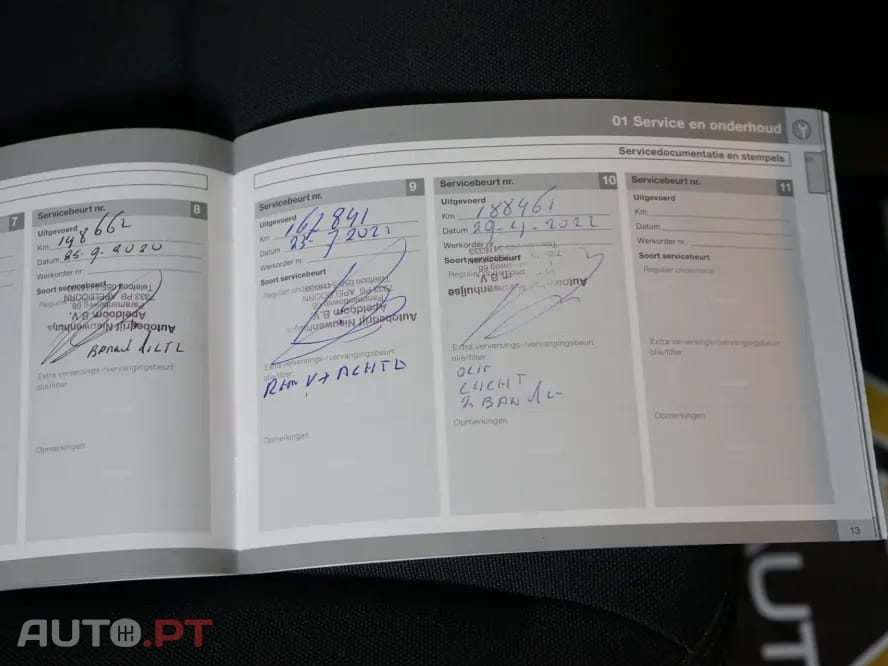 01 Service en onderhoud
Servicedocumentatie en stempels
7
Servicebeurt nr. 8
Uitgevoerd
Km 148662
Datum 25-9-2020
Werkorder nr.
Soort servicebeurt
Regulier
Autobedrijf Nieuwenhuijse
Apeldoorn B.V.
Paramariboweg 68
7333 PB APELDOORN
Extra verversings-/vervangingsbeurt
olie/filter:
Opmerkingen
Servicebeurt nr. 9
Uitgevoerd
Km 167841
Datum 23-7-2021
Werkorder nr.
Soort servicebeurt
Regulier onderhoud
Autobedrijf Nieuwenhuijse
Apeldoorn B.V.
Paramariboweg 68
7333 PB APELDOORN
Telefoon
Extra verversings-/vervangingsbeurt
olie/filter:
Rem V+ ACHTER
Opmerkingen
Servicebeurt nr. 10
Uitgevoerd
Km 188461
Datum 29-4-2022
Werkorder nr.
Soort servicebeurt
Regulier onderhoud
Extra verversings-/vervangingsbeurt
olie/filter:
OLIE
LUCHT
2 BAND
Opmerkingen
Servicebeurt nr. 11
Uitgevoerd
Km
Datum
Werkorder nr.
Soort servicebeurt
Regulier onderhoud
Extra verversings-/vervangingsbeurt
olie/filter:
Opmerkingen
13
UT
AUTO.PT